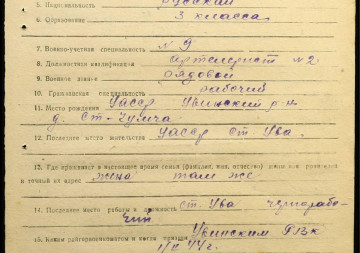 5. Национальность русский
6. Образование 3 класса
7. Военно-учетная специальность № 9
8. Должностная квалификация артиллерист № 2
9. Военное звание рядовой
10. Гражданская специальность рабочий
11. Место рождения УАССР Увинский р-н
д. Ст-
12. Последнее место жительства УАССР ст Ува.
13. Где проживает в настоящее время семья (фамилия, имя, отчество) жены или родителей
и точный их адрес жена там же
14. Последнее место работы и должность ст. Ува чернорабо-
чий
15. Каким райгорвоенкоматом и когда призван Увинским РВК
44 г.